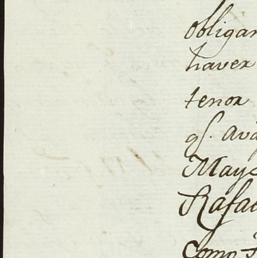 obligan
haver
tenor
qᵉ. Ava
Maye
Rafae
Como